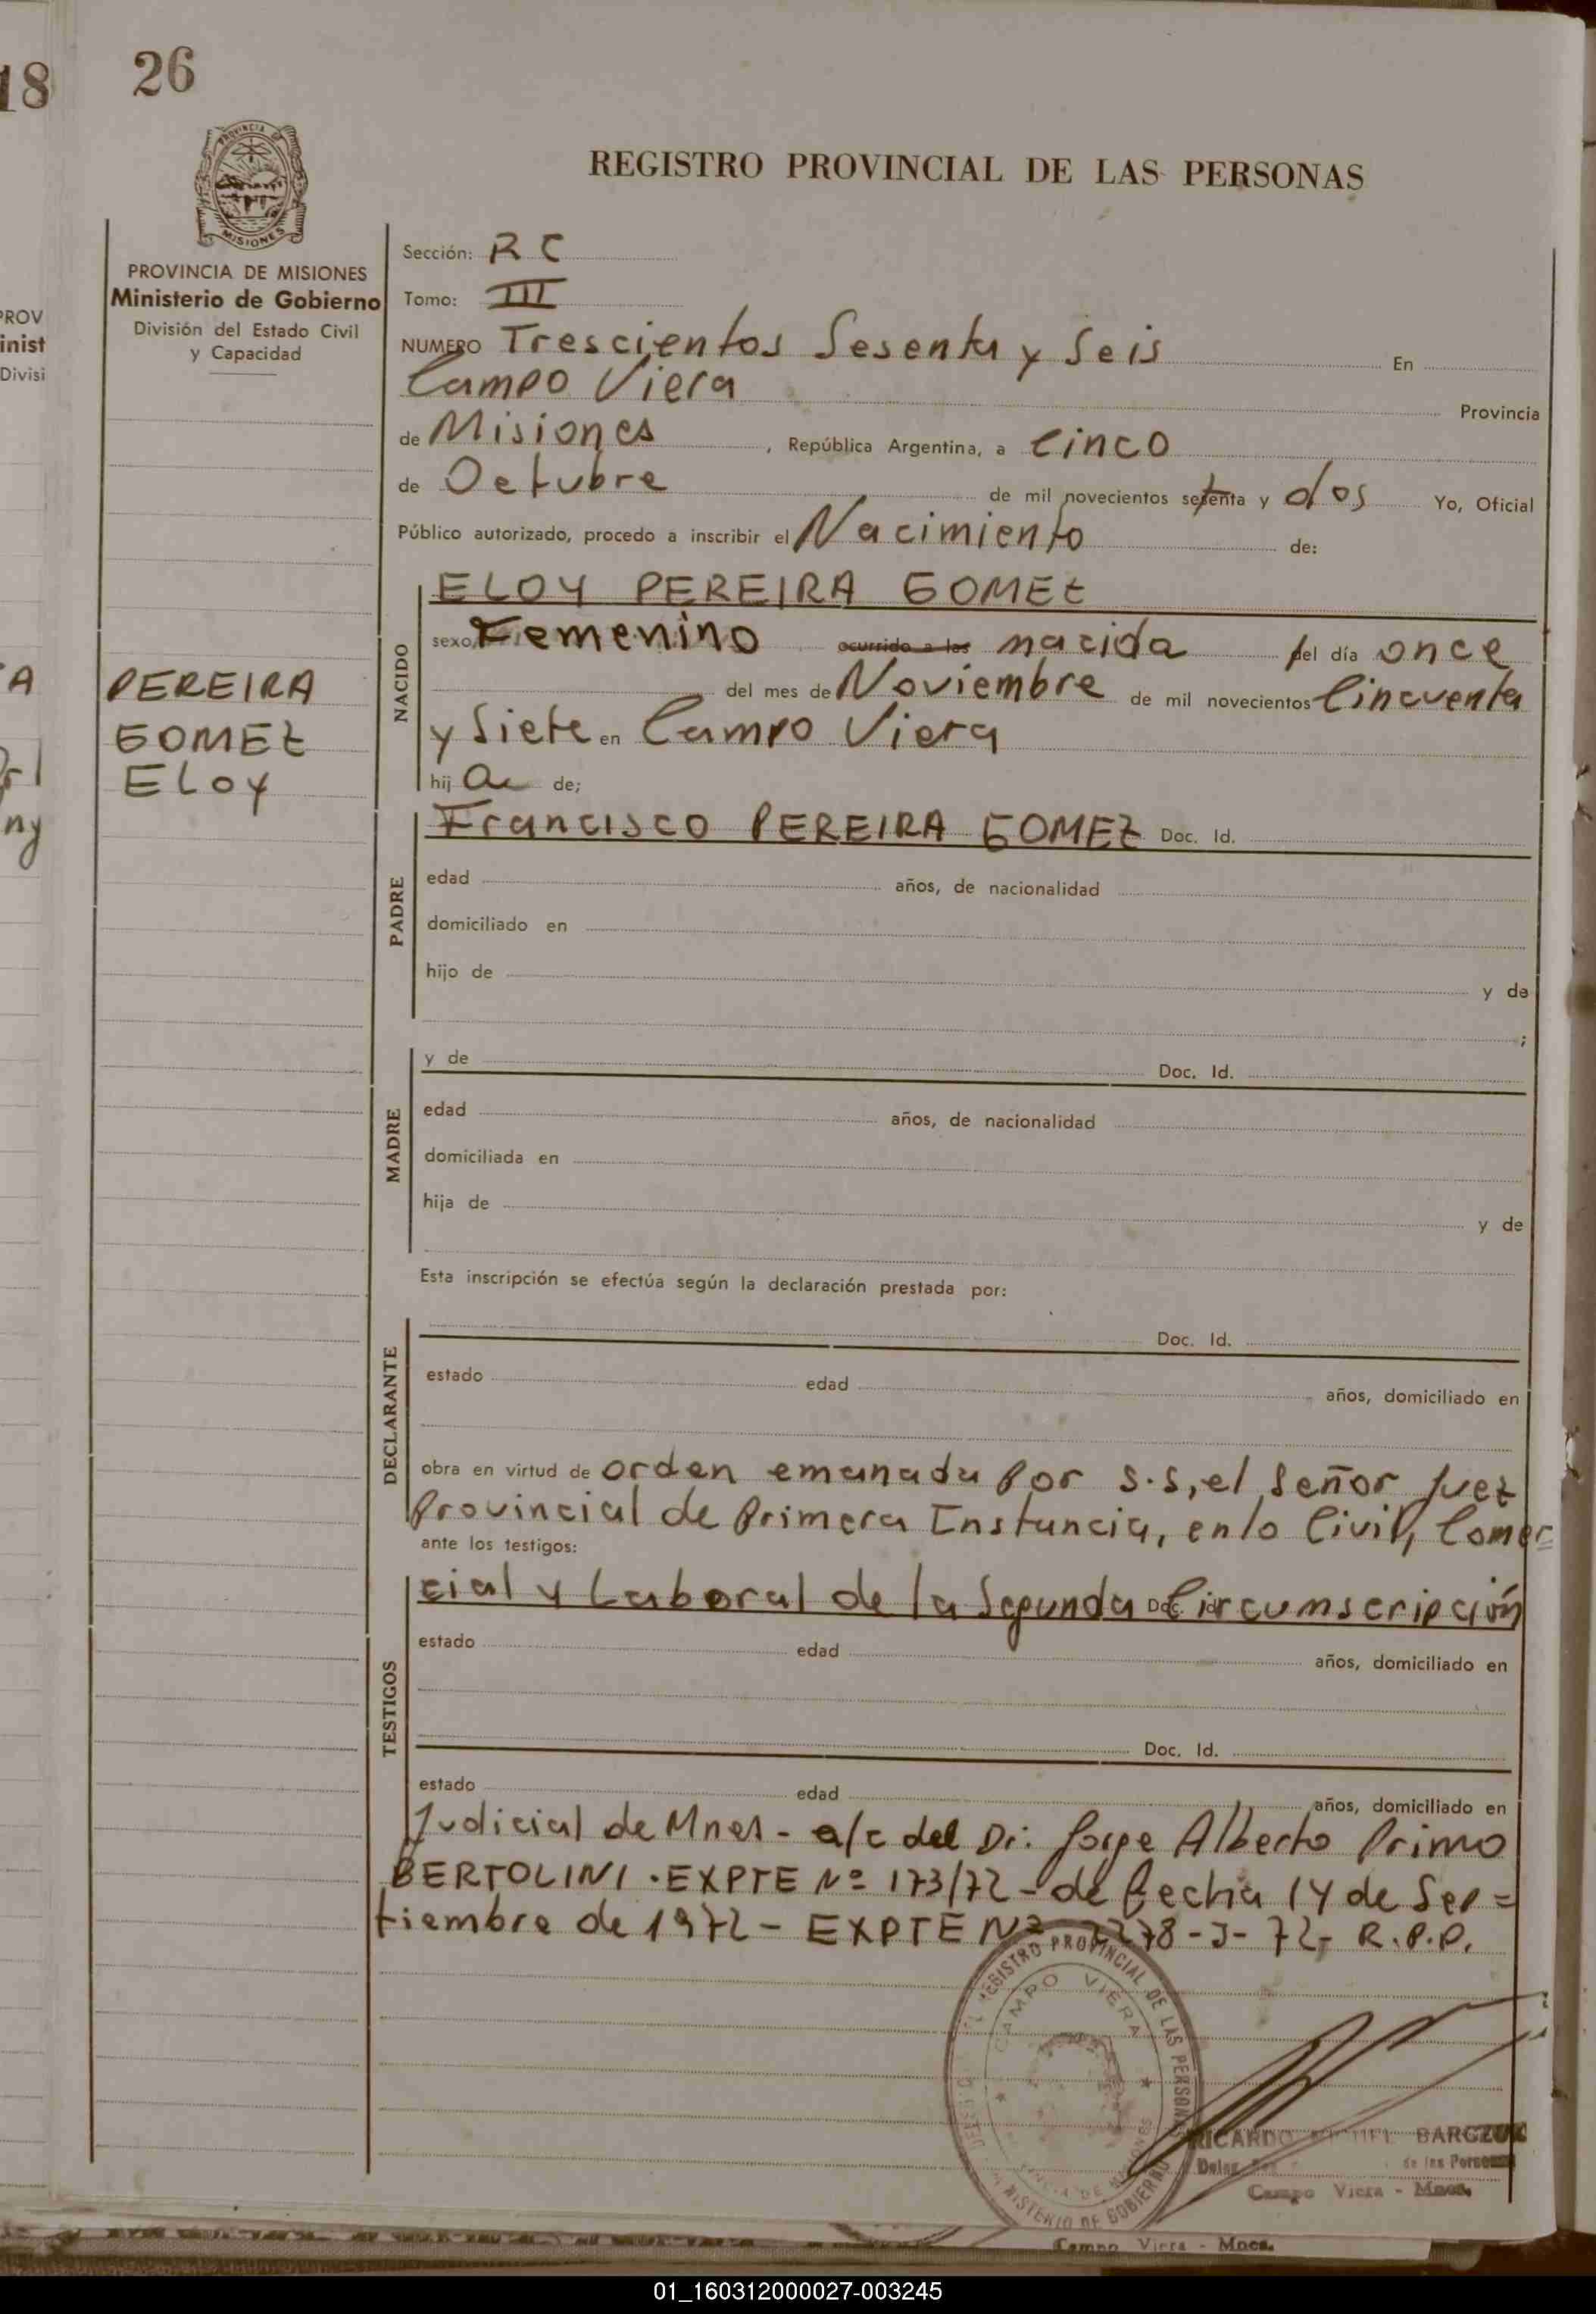 18
26
PROVINCIA DE
MISIONES
REGISTRO PROVINCIAL DE LAS PERSONAS
PROVINCIA DE MISIONES
Ministerio de Gobierno
División del Estado Civil
y Capacidad
PROV
inist
Divisi
A
ny
PEREIRA
GOMEZ
ELOY
Sección: RC
Tomo: III
NUMERO Trescientos Sesenta y Seis En
Campo Viera Provincia
de Misiones, República Argentina, a Cinco
de Octubre de mil novecientos setenta y dos Yo, Oficial
Público autorizado, procedo a inscribir el Nacimiento de:
NACIDO
ELOY PEREIRA GOMEZ
sexo, Femenino ocurrido a las nacida del día once
del mes de Noviembre de mil novecientos Cincuenta
y Siete en Campo Viera
hija de;
PADRE
Francisco PEREIRA GOMEZ Doc. Id.
edad años, de nacionalidad
domiciliado en
hijo de y de
;
MADRE
y de Doc. Id.
edad años, de nacionalidad
domiciliada en
hija de y de
Esta inscripción se efectúa según la declaración prestada por:
DECLARANTE
Doc. Id.
estado edad años, domiciliado en
obra en virtud de orden emanada por S.S, el Señor Juez
Provincial de Primera Instancia, en lo Civil, Comer=
ante los testigos:
TESTIGOS
cial y Laboral de la Segunda Doc. Id. Circumscripción
estado edad años, domiciliado en
Doc. Id.
estado edad años, domiciliado en
Judicial de Mnes - a/c del Dr: Jorge Alberto Primo
BERTOLINI. EXPTE Nº 173/72 - de fecha 14 de Sep=
tiembre de 1972 - EXPTE Nº 78-J-72, R.P.P.
REGISTRO PROVINCIAL DE LAS PERSONAS
CAMPO VIERA
MINISTERIO DE GOBIERNO
RICARDO BARCZUK
de las Personas
Campo Viera - Mnes.
Campo Viera - Mnes.
01_160312000027-003245